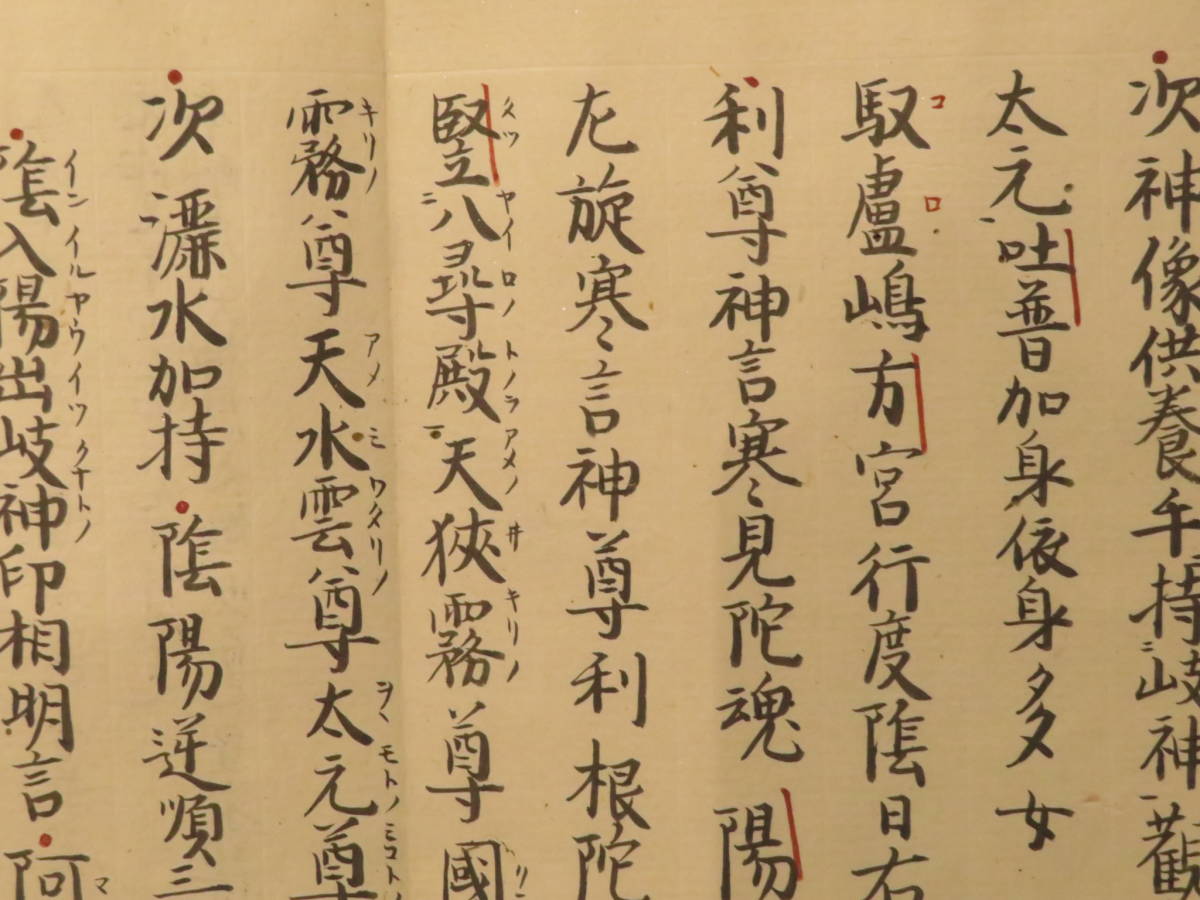 次神像供養手持ニ岐神一観
太元吐普加身依身多女
馭盧嶋方宮行度陰日右
利尊神言寒言寒見陀魂陽
左旋寒言神尊利根陀
竪立八尋殿天狹霧尊國
霧尊天水雲尊太元尊
次灑水加持陰陽逆順三
陰入陽出岐神印相明言阿